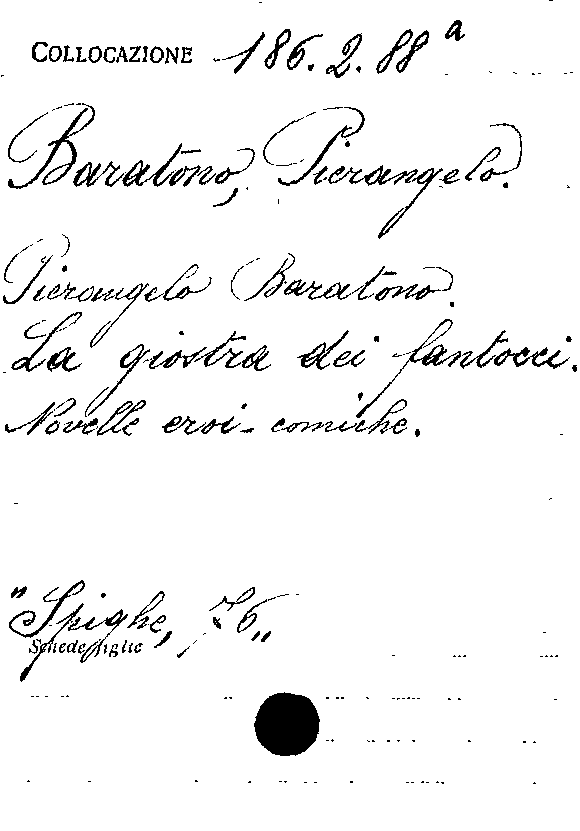 COLLOCAZIONE 186.2.88 a
Baratono, Pierangelo.
Pierangelo Baratono.
La giostra dei fantocci.
Novelle eroi-comiche.
"Spighe, 76"
Schede figlie